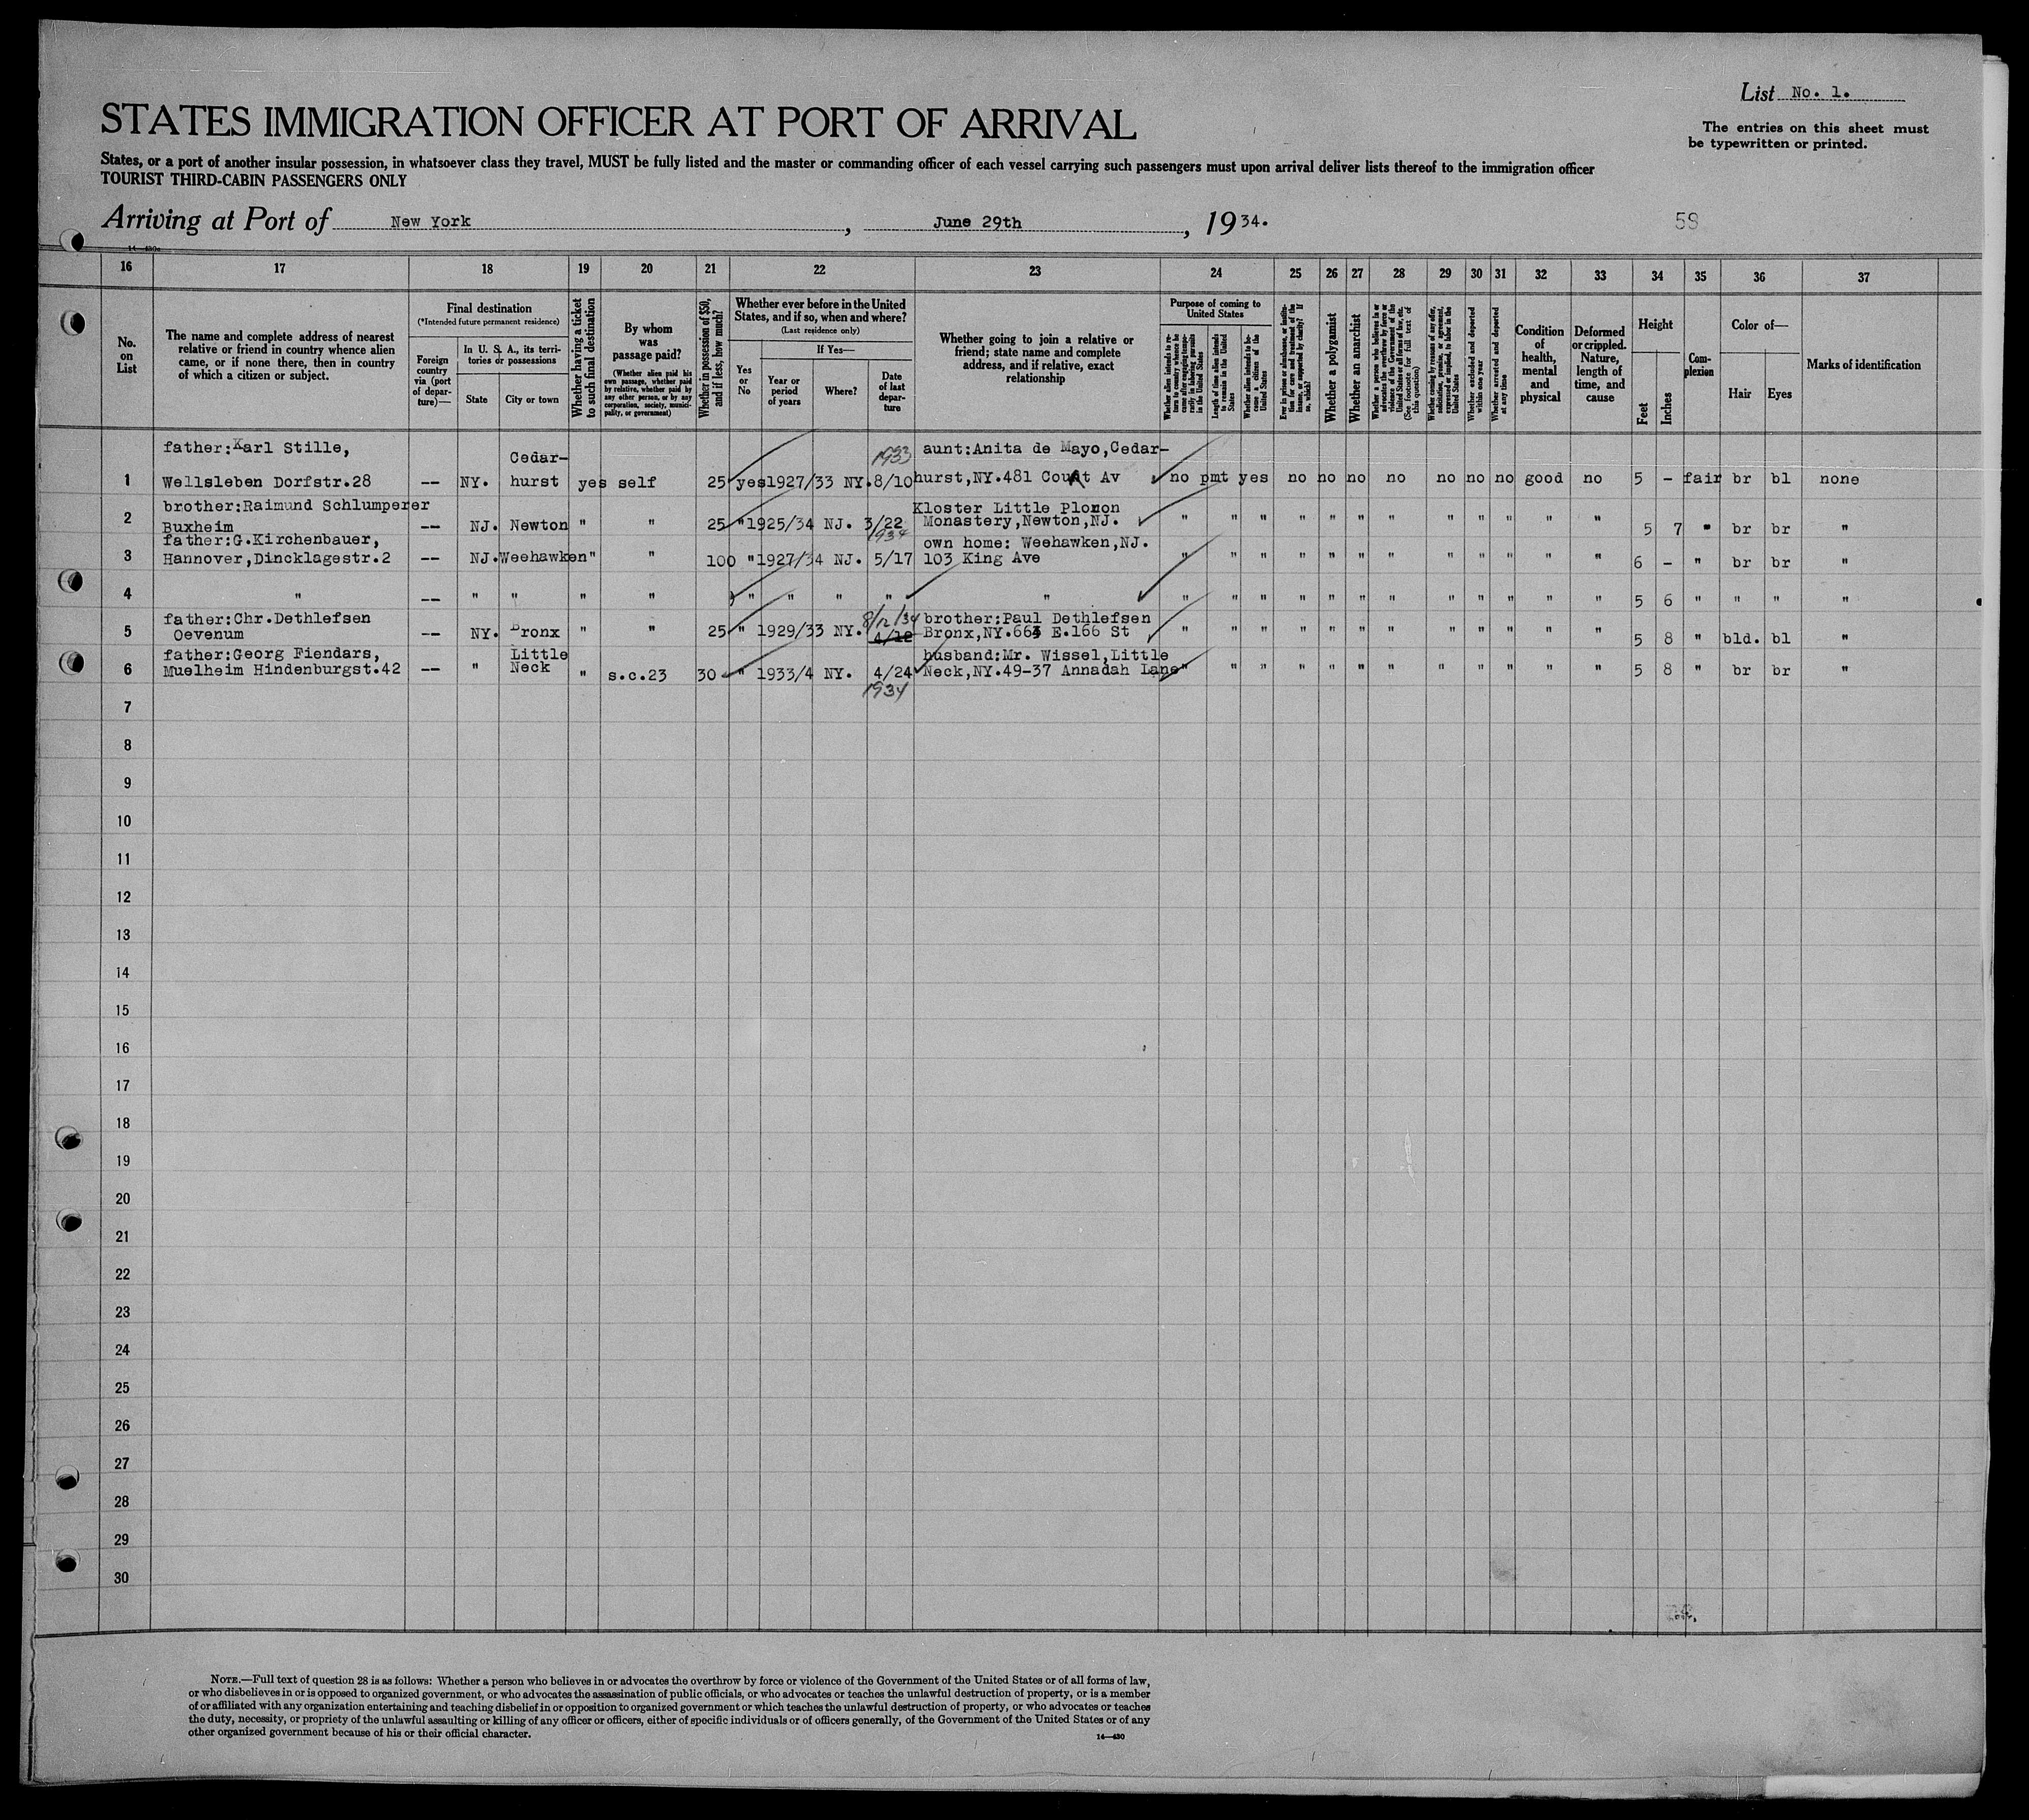 List No. 1.
STATES IMMIGRATION OFFICER AT PORT OF ARRIVAL
The entries on this sheet must
be typewritten or printed.
States, or a port of another insular possession, in whatsoever class they travel, MUST be fully listed and the master or commanding officer of each vessel carrying such passengers must upon arrival deliver lists thereof to the immigration officer
TOURIST THIRD-CABIN PASSENGERS ONLY
Arriving at Port of New York, June 29th, 1934.
58
14—430a
16 17 18 19 20 21 22 23 24 25 26 27 28 29 30 31 32 33 34 35 36 37
No.
on
List
The name and complete address of nearest
relative or friend in country whence alien
came, or if none there, then in country
of which a citizen or subject.
Final destination
(*Intended future permanent residence)
Foreign
country
via (port
of depar-
ture)—
In U. S. A., its terri-
tories or possessions
State
City or town
Whether having a ticket
to such final destination
By whom
was
passage paid?
(Whether alien paid his
own passage, whether paid
by relative, whether paid by
any other person, or by any
corporation, society, munici-
pality, or government)
Whether in possession of $50,
and if less, how much?
Whether ever before in the United
States, and if so, when and where?
(Last residence only)
Yes
or
No
If Yes—
Year or
period
of years
Where?
Date
of last
depar-
ture
Whether going to join a relative or
friend; state name and complete
address, and if relative, exact
relationship
Purpose of coming to
United States
Whether alien intends to re-
turn to country whence he
came after engaging tempo-
rarily in laboring pursuits
in the United States
Length of time alien intends
to remain in the United
States
Whether alien intends to be-
come a citizen of the
United States
Ever in prison or almshouse, or institu-
tion for care and treatment of the
insane, or supported by charity? If
so, which?
Whether a polygamist
Whether an anarchist
Whether a person who believes in or
advocates the overthrow by force or
violence of the Government of the
United States or all forms of law, etc.
(See footnote for full text of
this question)
Whether coming by reason of any offer,
solicitation, promise, or agreement,
expressed or implied, to labor in the
United States
Whether excluded and deported
within one year
Whether arrested and deported
at any time
Condition
of
health,
mental
and
physical
Deformed
or crippled.
Nature,
length of
time, and
cause
Height
Feet
Inches
Com-
plexion
Color of—
Hair
Eyes
Marks of identification
father:Karl Stille, Cedar- 1933 aunt:Anita de Mayo,Cedar-
1 Wellsleben Dorfstr.28 -- NY. hurst yes self 25 yes 1927/33 NY. 8/10 hurst,NY.481 Court Av no pmt yes no no no no no no no good no 5 - fair br bl none
brother:Raimund Schlumperer Kloster Little
2 Buxheim -- NJ. Newton " " 25 " 1925/34 NJ. 3/22 Monastery,Newton,NJ. " " " " " " " " " " " " 5 7 " br br "
father:G.Kirchenbauer, 1934 own home: Weehawken,NJ.
3 Hannover,Dincklagestr.2 -- NJ. Weehawken " " 100 " 1927/34 NJ. 5/17 103 King Ave " " " " " " " " " " " " 6 - " br br "
4 " -- " " " " " " " " " " " " " " " " " " " " " 5 6 " " " "
father:Chr.Dethlefsen 8/12/34 brother:Paul Dethlefsen
5 Oevenum -- NY. Bronx " " 25 " 1929/33 NY. 4/12 Bronx,NY.663 E.166 St " " " " " " " " " " " " 5 8 " bld. bl "
father:Georg Fiendars, Little husband:Mr. Wissel,Little
6 Muelheim Hindenburgst.42 -- " Neck " s.c.23 30 " 1933/4 NY. 4/24 Neck,NY.49-37 Annadah Lane " " " " " " " " " " " " 5 8 " br br "
1934
7
8
9
10
11
12
13
14
15
16
17
18
19
20
21
22
23
24
25
26
27
28
29
30
NOTE.—Full text of question 28 is as follows: Whether a person who believes in or advocates the overthrow by force or violence of the Government of the United States or of all forms of law,
or who disbelieves in or is opposed to organized government, or who advocates the assassination of public officials, or who advocates or teaches the unlawful destruction of property, or is a member
of or affiliated with any organization entertaining and teaching disbelief in or opposition to organized government or which teaches the unlawful destruction of property, or who advocates or teaches
the duty, necessity, or propriety of the unlawful assaulting or killing of any officer or officers, either of specific individuals or of officers generally, of the Government of the United States or of any
other organized government because of his or their official character.
14—430